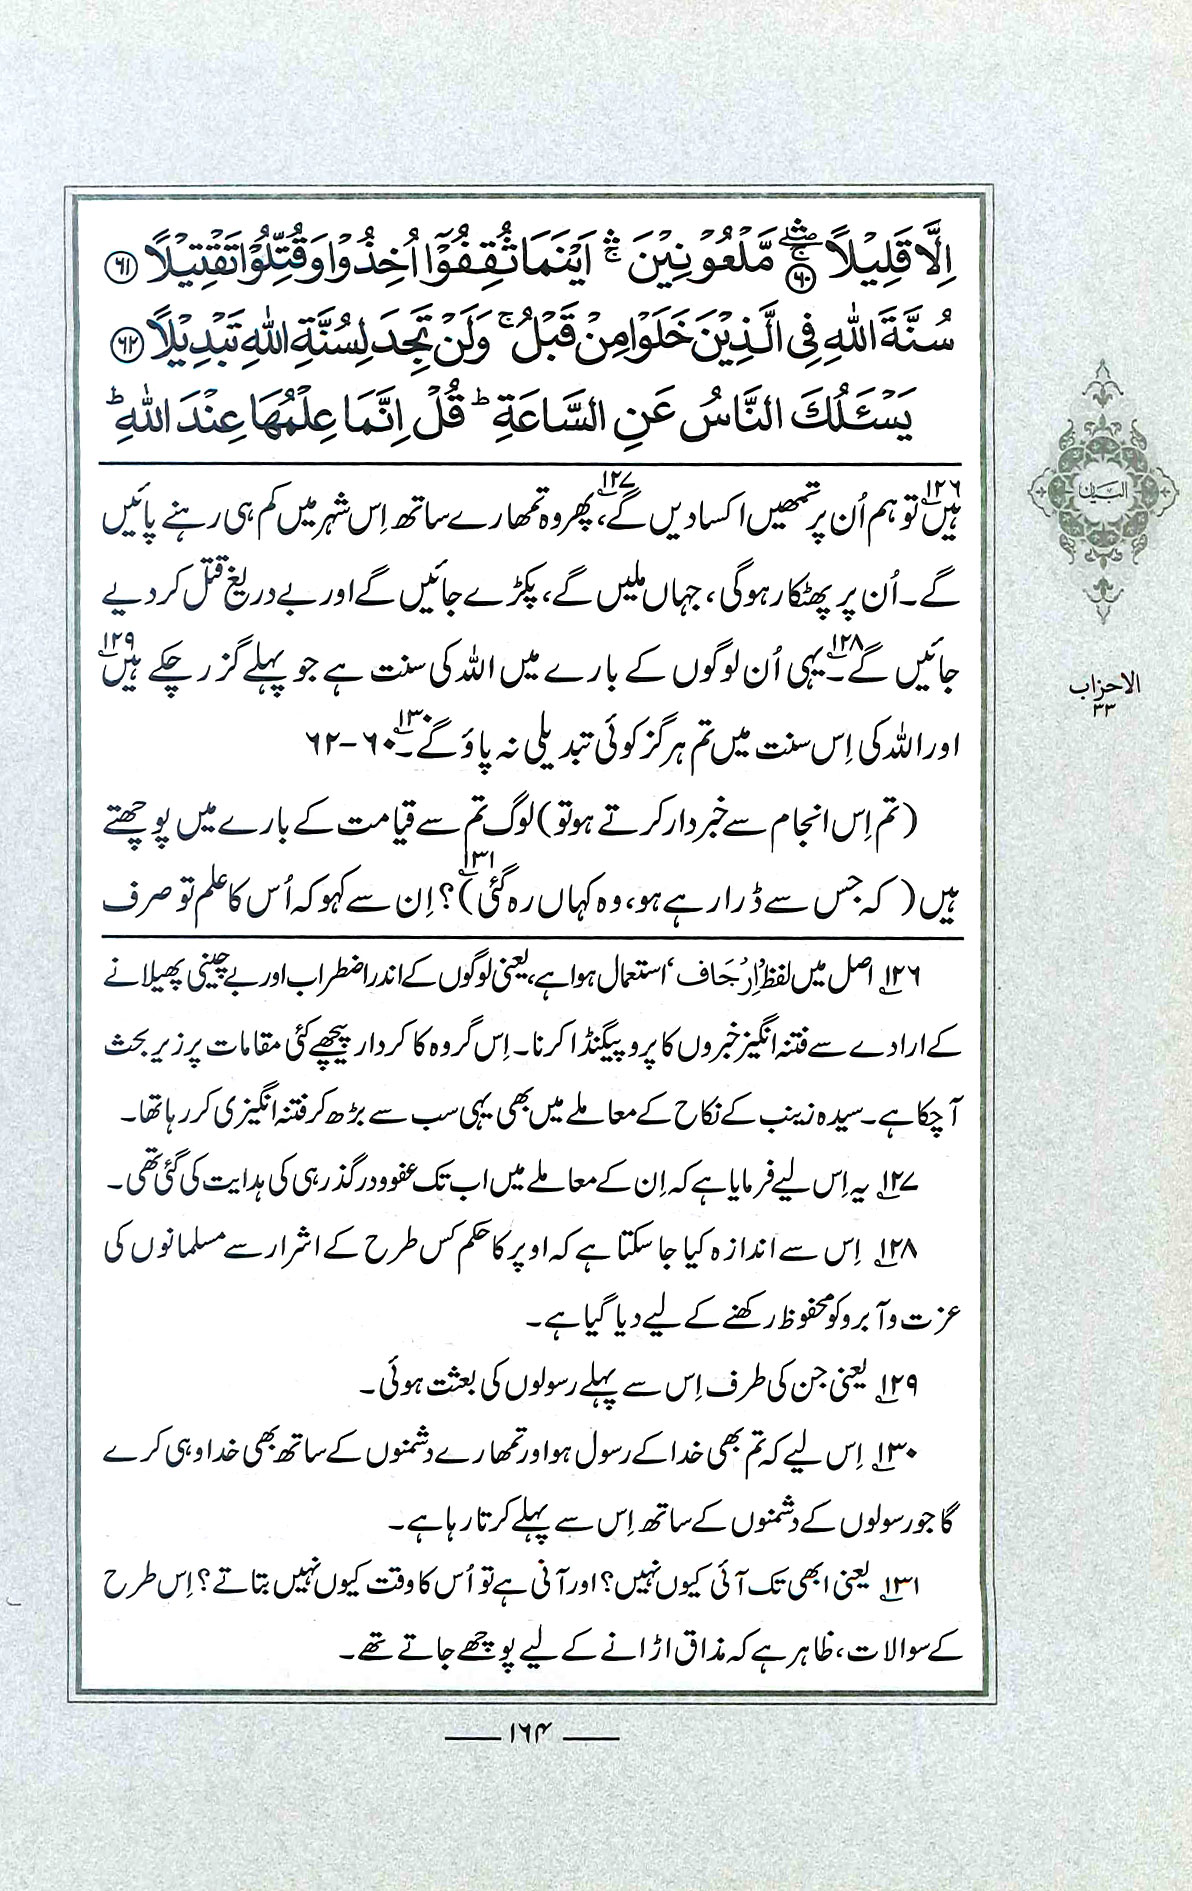 اِلَّا قَلِيْلًا ۛۖۚ ﴿۶۰﴾ مَّلْعُوْنِيْنَ ۛۚ اَيْنَمَا ثُقِفُوْٓا اُخِذُوْا وَقُتِّلُوْا تَقْتِيْلًا ﴿۶۱﴾
سُنَّةَ اللّٰهِ فِي الَّذِيْنَ خَلَوْا مِنْ قَبْلُ ۚ وَلَنْ تَجِدَ لِسُنَّةِ اللّٰهِ تَبْدِيْلًا ﴿۶۲﴾
يَسْـَٔلُكَ النَّاسُ عَنِ السَّاعَةِ ؕ قُلْ اِنَّمَا عِلْمُهَا عِنْدَ اللّٰهِ ؕ
ہیں۱۲۶ تو ہم اُن پر تمھیں اکسا دیں گے،۱۲۷ پھر وہ تمھارے ساتھ اِس شہر میں کم ہی رہنے پائیں
گے۔ اُن پر پھٹکار ہوگی، جہاں ملیں گے، پکڑے جائیں گے اور بے دریغ قتل کر دیے
جائیں گے۔۱۲۸ یہی اُن لوگوں کے بارے میں اللہ کی سنت ہے جو پہلے گزر چکے ہیں۱۲۹
اور اللہ کی اِس سنت میں تم ہرگز کوئی تبدیلی نہ پاؤ گے۔۱۳۰ ۶۰-۶۲
(تم اِس انجام سے خبردار کرتے ہو تو) لوگ تم سے قیامت کے بارے میں پوچھتے
ہیں (کہ جس سے ڈرا رہے ہو، وہ کہاں رہ گئی)۱۳۱؟ اِن سے کہو کہ اُس کا علم تو صرف
۱۲۶؎ اصل میں لفظ 'اِرْجَاف' استعمال ہوا ہے، یعنی لوگوں کے اندر اضطراب اور بے چینی پھیلانے
کے ارادے سے فتنہ انگیز خبروں کا پروپیگنڈا کرنا۔ اِس گروہ کا کردار پیچھے کئی مقامات پر زیر بحث
آ چکا ہے۔ سیدہ زینب کے نکاح کے معاملے میں بھی یہی سب سے بڑھ کر فتنہ انگیزی کر رہا تھا۔
۱۲۷؎ یہ اِس لیے فرمایا ہے کہ اِن کے معاملے میں اب تک عفو و درگذر ہی کی ہدایت کی گئی تھی۔
۱۲۸؎ اِس سے اندازہ کیا جا سکتا ہے کہ اوپر کا حکم کس طرح کے اشرار سے مسلمانوں کی
عزت و آبرو کو محفوظ رکھنے کے لیے دیا گیا ہے۔
۱۲۹؎ یعنی جن کی طرف اِس سے پہلے رسولوں کی بعثت ہوئی۔
۱۳۰؎ اِس لیے کہ تم بھی خدا کے رسول ہو اور تمھارے دشمنوں کے ساتھ بھی خدا وہی کرے
گا جو رسولوں کے دشمنوں کے ساتھ اِس سے پہلے کرتا رہا ہے۔
۱۳۱؎ یعنی ابھی تک آئی کیوں نہیں؟ اور آنی ہے تو اُس کا وقت کیوں نہیں بتاتے؟ اِس طرح
کے سوالات، ظاہر ہے کہ مذاق اڑانے کے لیے پوچھے جاتے تھے۔
البیان
الاحزاب
۳۳
۱۶۴